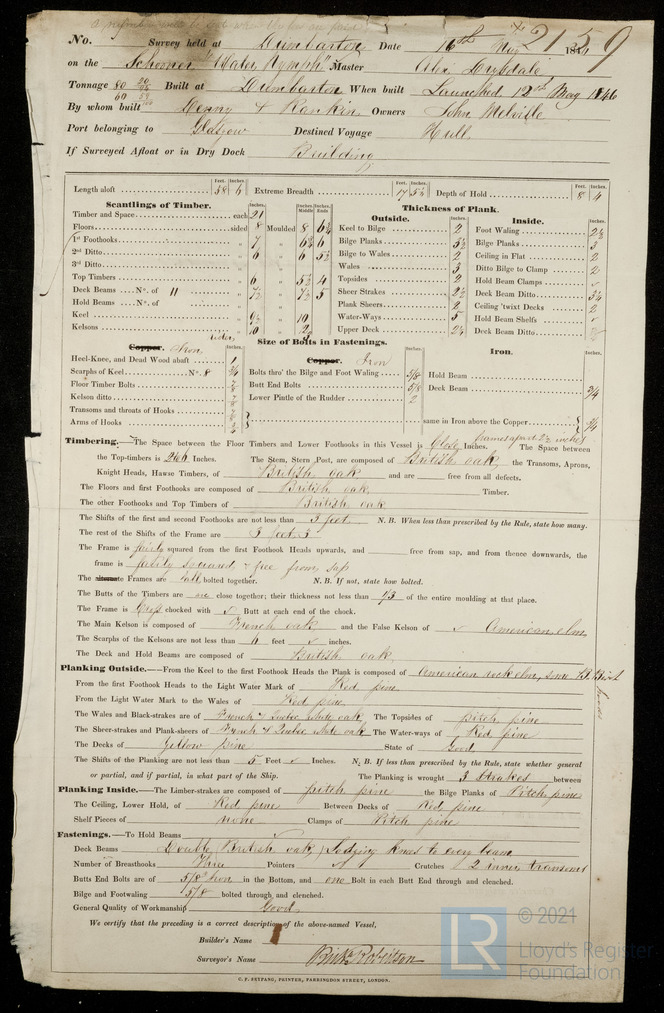 No. Survey held at Dumbarton Date 16th May 1846
2159
on the Schooner "Water Nymph" Master Alex Drysdale
Tonnage Built at Dumbarton When built Launched 12th May 1846
By whom built Denny & Rankin Owners John Melville
Port belonging to Glasgow Destined Voyage Hull
If Surveyed Afloat or in Dry Dock Building
Length aloft 58 6 Extreme Breadth 17 Depth of Hold 8 4
Scantlings of Timber. Thickness of Plank.
Outside. Inside.
Timber and Space each 21
Floors sided 8 Moulded 8
1st Foothooks 7
2nd Ditto 6
3rd Ditto
Top Timbers 6
Deck Beams No. of 11
Hold Beams No. of
Keel 10
Kelsons 10
Keel to Bilge 2
Bilge Planks
Bilge to Wales 2
Wales 3
Topsides 2
Sheer Strakes
Plank Sheers 2
Water-Ways 5
Upper Deck
Foot Waling
Bilge Planks 3
Ceiling in Flat 2
Ditto Bilge to Clamp 2
Hold Beam Clamps
Deck Beam Ditto
Ceiling 'twixt Decks 2
Hold Beam Shelfs
Deck Beam Ditto
Size of Bolts in Fastenings.
Copper. Iron
Heel-Knee, and Dead Wood abaft 1
Scarphs of Keel No. 8 3/4
Floor Timber Bolts
Kelson ditto
Transoms and throats of Hooks
Arms of Hooks
Copper. Iron
Bolts thro' the Bilge and Foot Waling 5/8
Butt End Bolts 5/8
Lower Pintle of the Rudder 2
Iron.
Hold Beam
Deck Beam 3/4
same in Iron above the Copper 3/4
Timbering.—The Space between the Floor Timbers and Lower Foothooks in this Vessel is Close Inches. frames apart 2½ inches The Space between
the Top-timbers is Inches. The Stem, Stern Post, are composed of British oak, the Transoms, Aprons,
Knight Heads, Hawse Timbers, of British oak and are free from all defects.
The Floors and first Foothooks are composed of British oak Timber.
The other Foothooks and Top Timbers of British oak
The Shifts of the first and second Foothooks are not less than 5 feet N.B. When less than prescribed by the Rule, state how many.
The rest of the Shifts of the Frame are
The Frame is fairly squared from the first Foothook Heads upwards, and free from sap, and from thence downwards, the
frame is fairly squared & free from sap
The alternate Frames are all bolted together. N.B. If not, state how bolted.
The Butts of the Timbers are close together; their thickness not less than 1/3 of the entire moulding at that place.
The Frame is chocked with Butt at each end of the chock.
The Main Kelson is composed of French oak and the False Kelson of American elm
The Scarphs of the Kelsons are not less than 6 feet inches.
The Deck and Hold Beams are composed of British oak
Planking Outside.—From the Keel to the first Foothook Heads the Plank is composed of American rock elm,
From the first Foothook Heads to the Light Water Mark of Red pine
From the Light Water Mark to the Wales of Red pine
The Wales and Black-strakes are of French & Quebec white oak The Topsides of pitch pine
The Sheer-strakes and Plank-sheers of French & Quebec white oak The Water-ways of Red pine
The Decks of Yellow pine State of Good
The Shifts of the Planking are not less than 5 Feet Inches. N.B. If less than prescribed by the Rule, state whether general
or partial, and if partial, in what part of the Ship. The Planking is wrought 3 strakes between
Planking Inside.—The Limber-strakes are composed of pitch pine the Bilge Planks of Pitch pine
The Ceiling, Lower Hold, of Red pine Between Decks of Red pine
Shelf Pieces of none Clamps of Pitch pine
Fastenings.—To Hold Beams
Deck Beams Double (British oak) Lodging knees to every beam
Number of Breasthooks Three Pointers Crotches 2 inner transoms
Butts End Bolts are of 5/8 Iron in the Bottom, and one Bolt in each Butt End through and cleached.
Bilge and Footwaling 5/8 bolted through and clenched.
General Quality of Workmanship Good
We certify that the preceding is a correct description of the above-named Vessel,
Builder's Name
Surveyor's Name Robertson
C. F. SEYFANG, PRINTER, FARRINGDON STREET, LONDON.
LR
© 2021
Lloyd's Register
Foundation